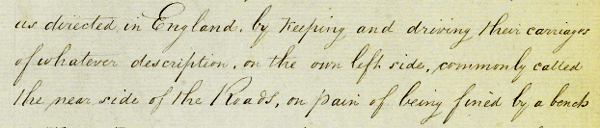 as directed in England, by keeping and driving their carriages
of whatever description, on the own left side, commonly called
the near side of the Roads, on pain of being fined by a bench